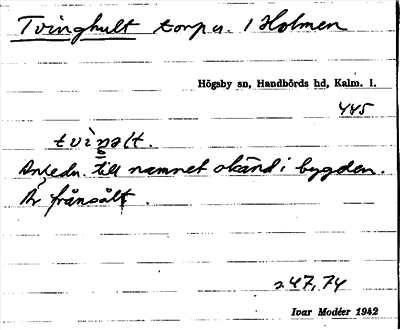 Tvinghult torp u. / Holmen
Högsby sn, Handbörds hd, Kalm. l.
445
tvìŋəlt.
Anledn. till namnet okänd i bygden.
Är frånsålt.
247,74
Ivar Modéer 1942